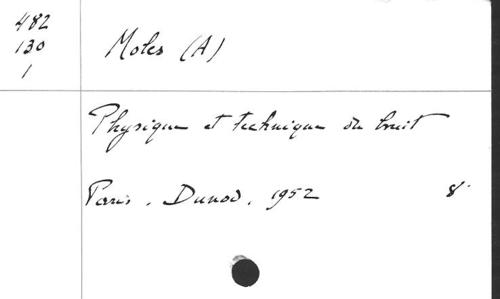 482
130
1
Moles (A)
Physique et technique du bruit
Paris. Dunod. 1952 8°